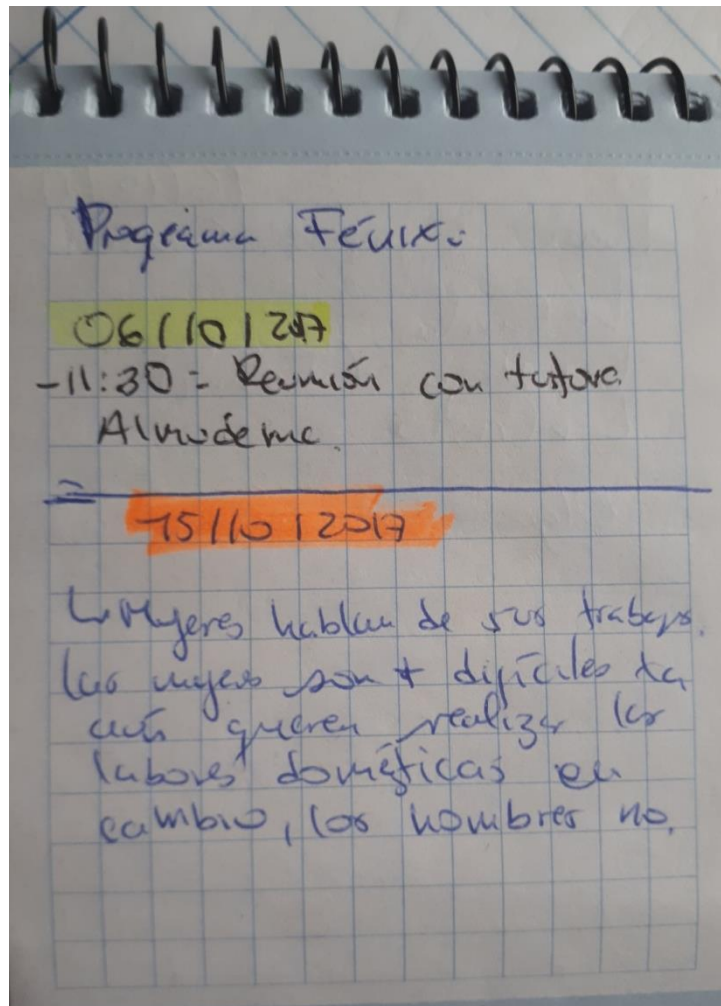 Programa Fénix:
06/10/2017
-11:30 = Reunión con tutora
Almudena.
15/10/2017
↳ Mujeres hablan de sus trabajos.
las mujeres son + difíciles
quieren realizar las
labores domésticas en
cambio, los hombres no.